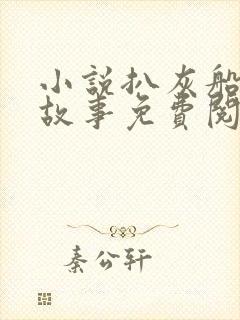 小說扒灰船
故事免費閱
秦公轩